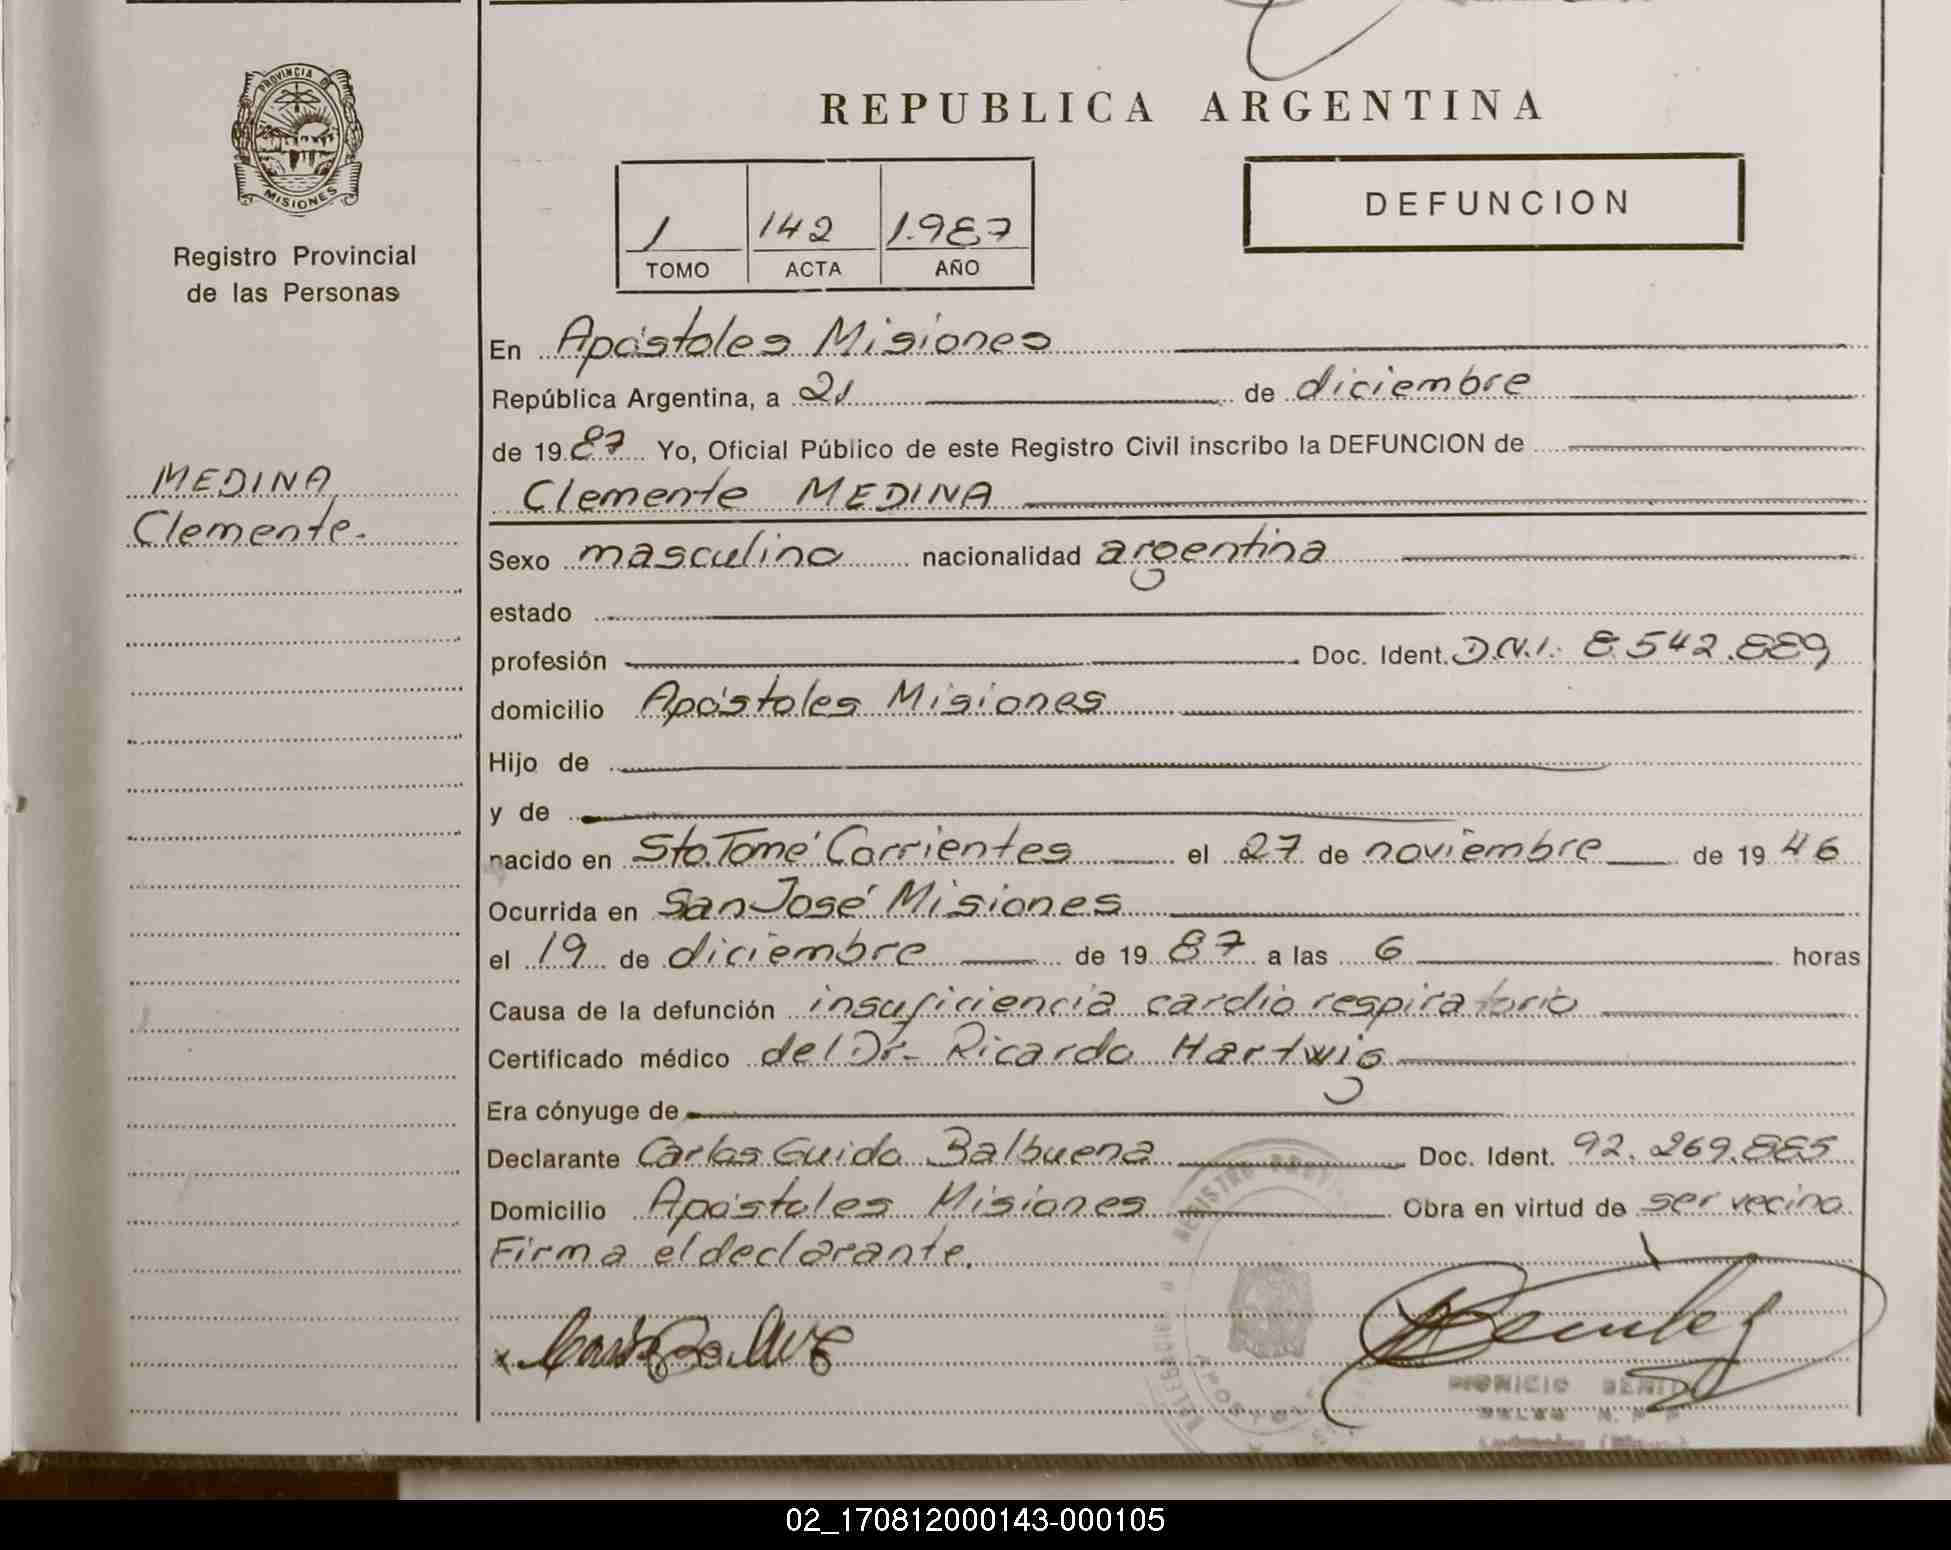 PROVINCIA DE
MISIONES
Registro Provincial
de las Personas
MEDINA
Clemente.
REPUBLICA ARGENTINA
1 142 1.987
TOMO ACTA AÑO
DEFUNCION
En Apóstoles Misiones
República Argentina, a 21 de diciembre
de 1987 Yo, Oficial Público de este Registro Civil inscribo la DEFUNCION de
Clemente MEDINA
Sexo masculino nacionalidad argentina
estado
profesión Doc. Ident. D.N.I. 8.542.889
domicilio Apóstoles Misiones
Hijo de
y de
nacido en Sto. Tomé Corrientes el 27 de noviembre de 1946
Ocurrida en San José Misiones
el 19 de diciembre de 1987 a las 6 horas
Causa de la defunción insuficiencia cardio respiratorio
Certificado médico del Dr. Ricardo Hartwig
Era cónyuge de
Declarante Carlos Guido Balbuena Doc. Ident. 92.269.885
Domicilio Apóstoles Misiones Obra en virtud de ser vecino
Firma el declarante.
DIONICIO
02_170812000143-000105